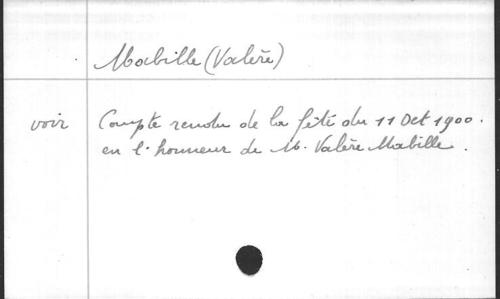 Mabille (Valère)
voir Compte rendu de la fêté du 11 Oct 1900.
en l'honneur de M. Valère Mabille.